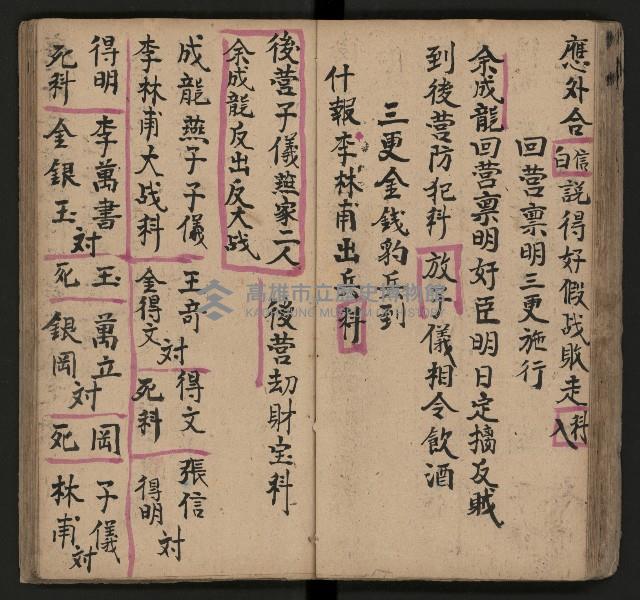 應外合 信白 說得好假战敗走 科入
回营禀明三更施行
余成龍回营禀明奸臣明日定擒反賊
到後营防犯科 放子儀相令飲酒
三更金銭豹兵到
什報李林甫出兵科
後营子儀燕家二人 後营刼財宝科
余成龍反出反大战
成龍燕子子儀 王竒 得文 張信
李林甫大战科 金得文 対 死科 得明 対
得明 李萬書 玉 萬立 岡 子儀
死科 金銀玉 対 死 銀岡 対 死 林甫 対
高雄市立歷史博物館
KAOHSIUNG MUSEUM OF HISTORY